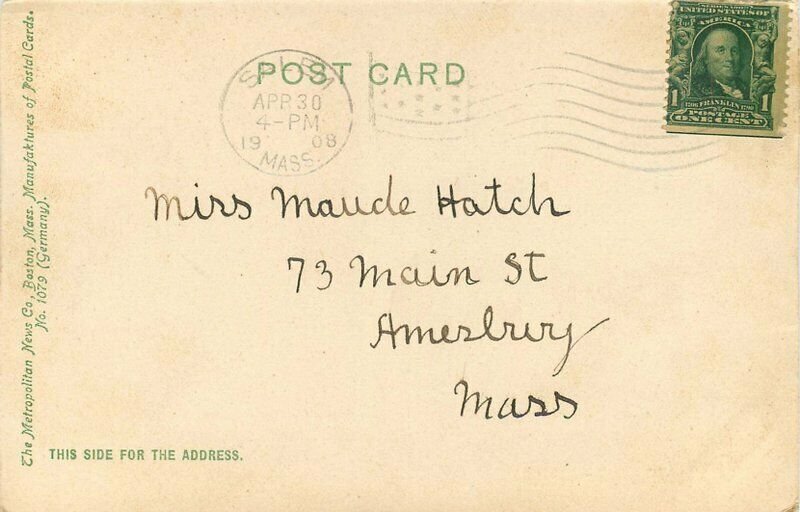 The Metropolitan News Co., Boston, Mass. Manufaktures of Postal Cards.
No. 1079 (Germany).
POST CARD
SALEM
APR 30
4-PM
19 08
MASS.
SERIES 1902
UNITED STATES OF
AMERICA
1 1706 FRANKLIN 1790 1
POSTAGE
ONE CENT
Miss Maude Hatch
73 Main St
Amesbury
Mass
THIS SIDE FOR THE ADDRESS.